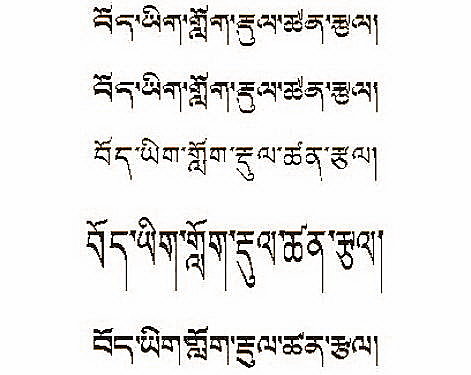 བོད་ཡིག་གློག་རྡུལ་ཚན་རྩལ།
བོད་ཡིག་གློག་རྡུལ་ཚན་རྩལ།
བོད་ཡིག་གློག་རྡུལ་ཚན་རྩལ།
བོད་ཡིག་གློག་རྡུལ་ཚན་རྩལ།
བོད་ཡིག་གློག་རྡུལ་ཚན་རྩལ།